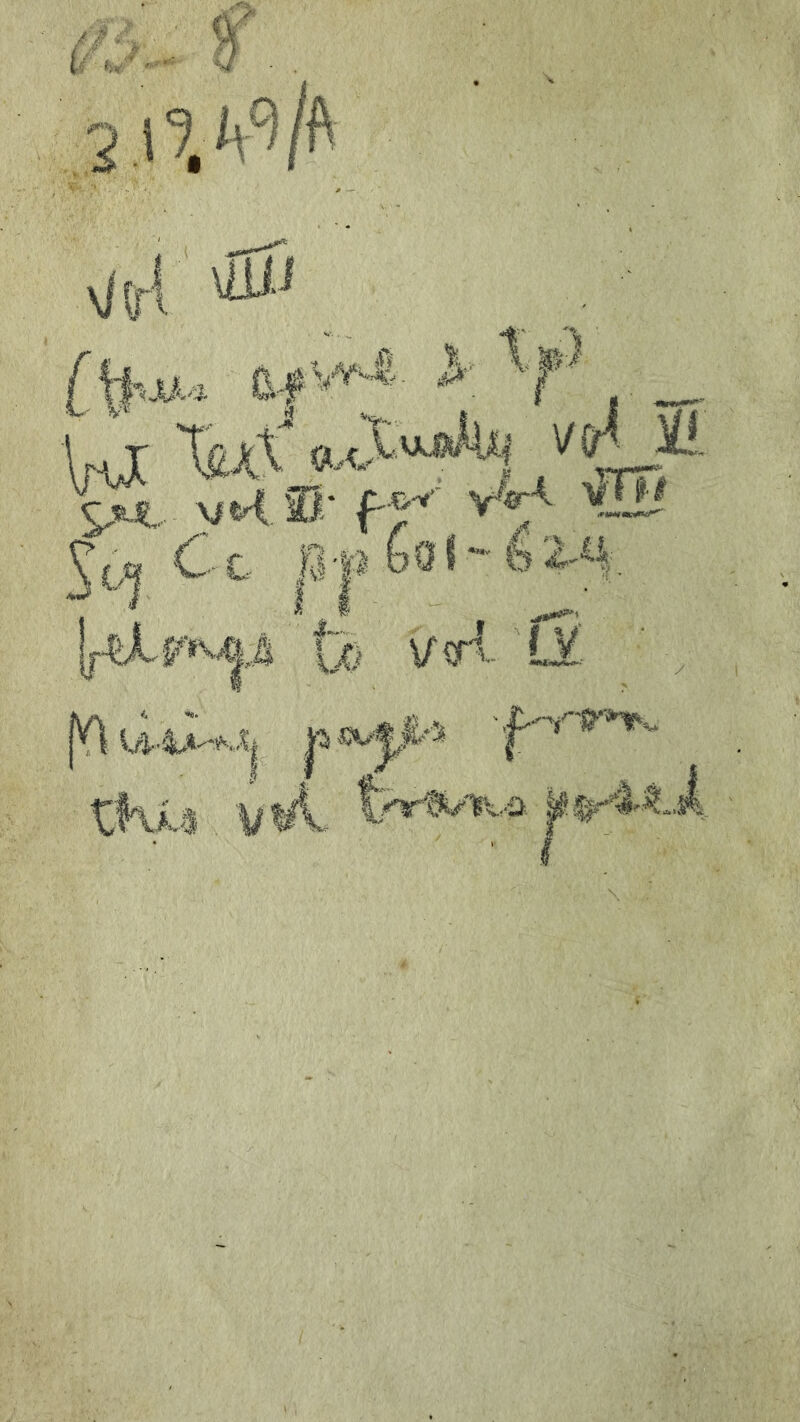 B-8
319.49/A
Vol VIII
(thus spine & tp)
but Text actually vol VI
see vol VI for vol VIII
Sig Cc pp 601-624
belongs to vol IV
Missing pages from
this vol transposed